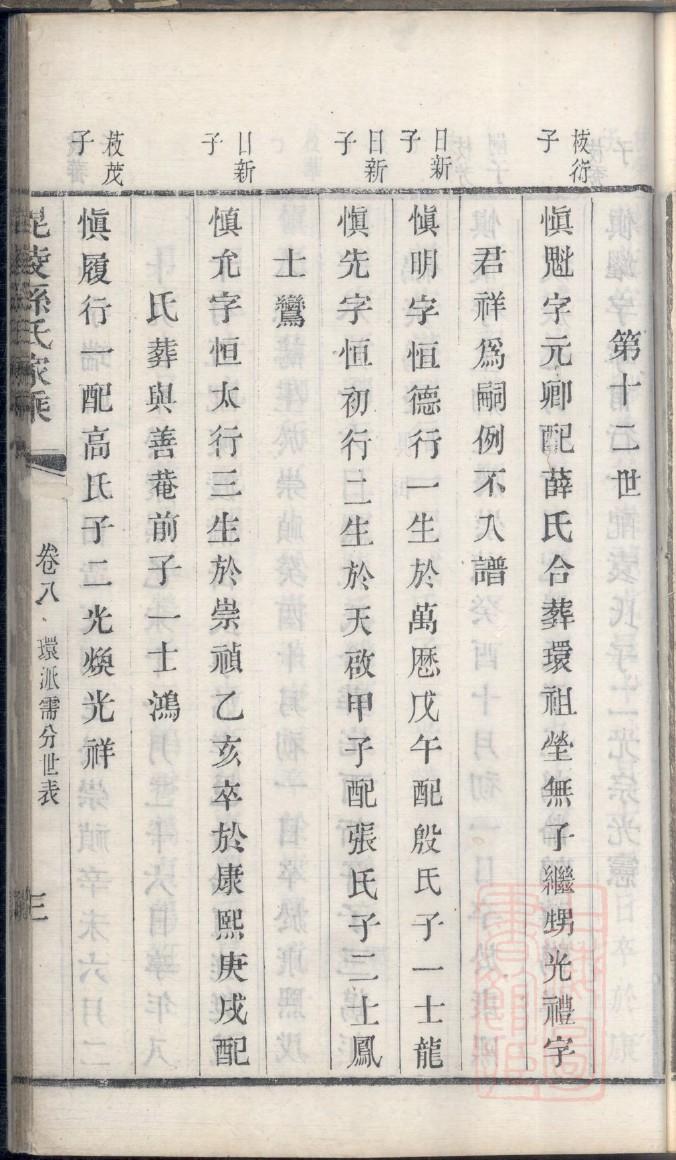 第十二世
愼魁字元卿配薛氏合葬環祖塋無子繼甥光禮字
君祥爲嗣例不入譜
日新
子
愼明字恒德行一生於萬歷戊午配殷氏子一士龍
日新
子
愼先字恒初行二生於天啟甲子配張氏子二士鳳
士鸞
日新
子
愼允字恒太行三生於崇禎乙亥卒於康熙庚戌配
氏葬與善菴前子一士鴻
茂
子
愼履行一配高氏子二光煥光祥
毘陵孫氏家乘
卷八
環派需分世表
三